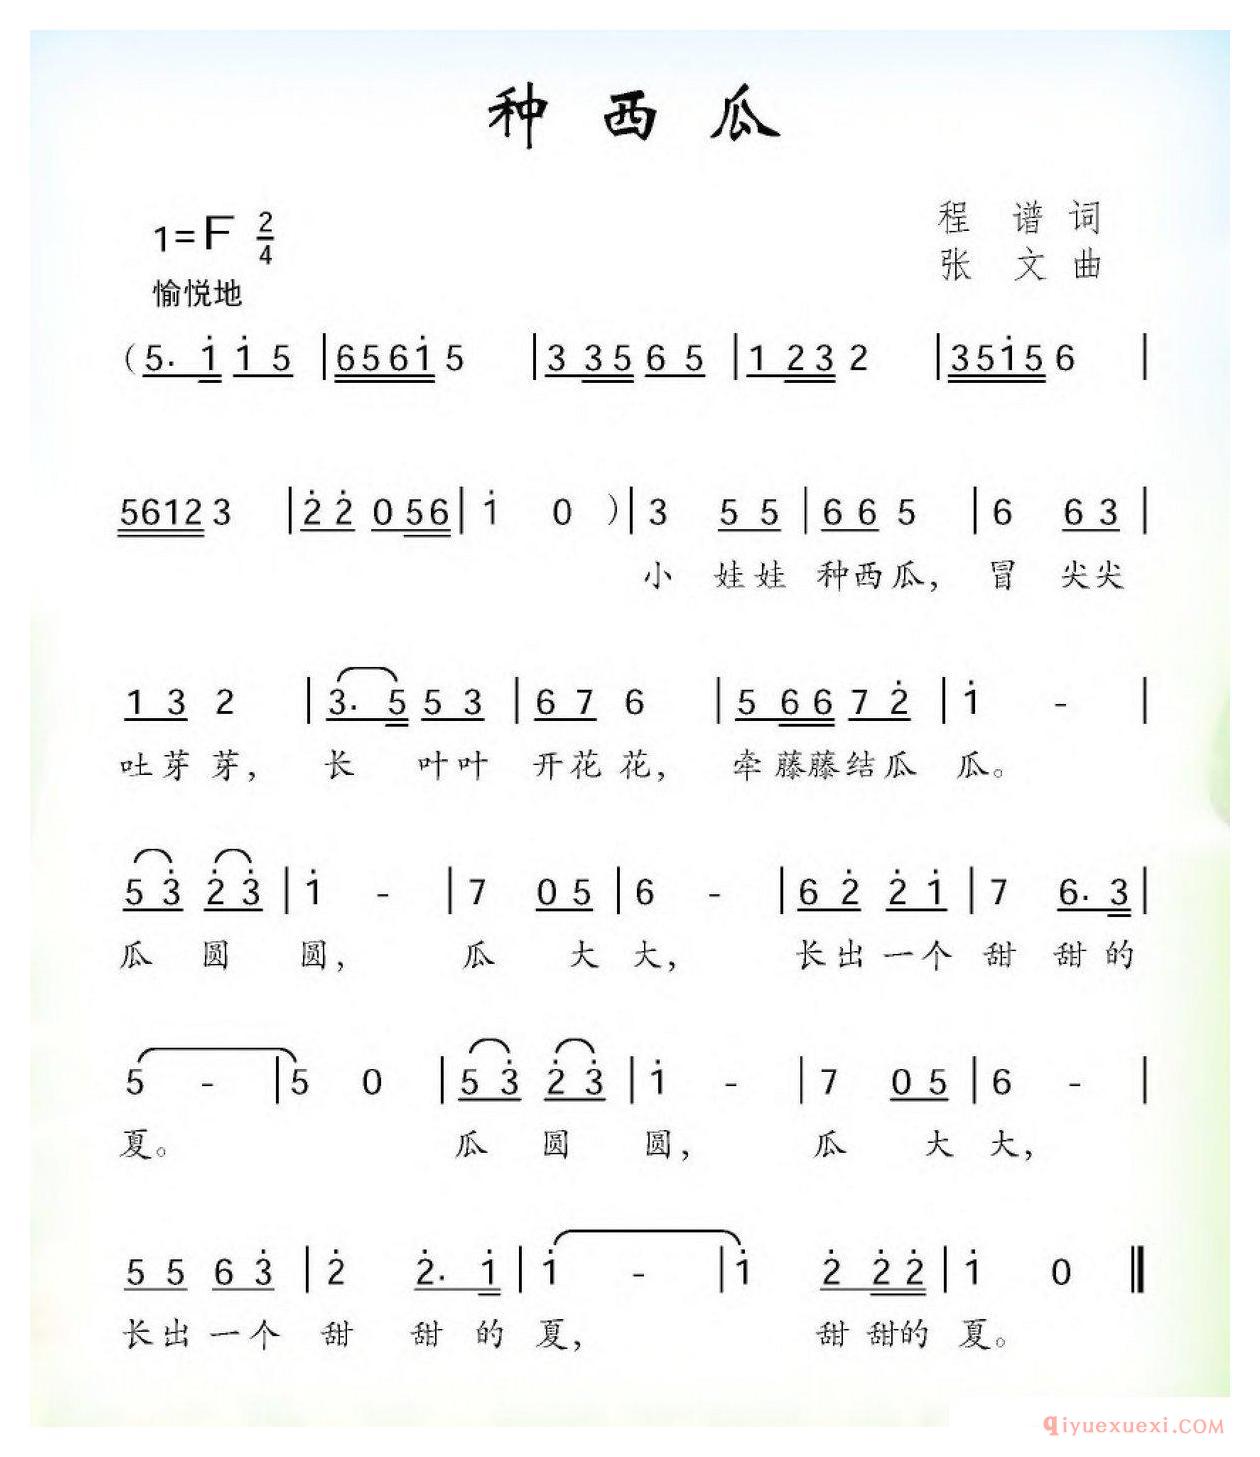 种西瓜
1=F 2/4
程 谱 词
张 文 曲
愉悦地
(5. i̇ i̇ 5 | 6 5 6 i̇ 5 | 3 3 5 6 5 | 1 2 3 2 | 3 5 i̇ 5 6 |
5 6 1 2 3 | 2̇ 2̇ 0 5 6 | i̇ 0 ) | 3 5 5 | 6 6 5 | 6 6 3 |
小 娃娃 种西瓜, 冒 尖尖
1 3 2 | 3. 5 5 3 | 6 7 6 | 5 6 6 7 2̇ | i̇ - |
吐芽芽, 长 叶叶 开花花, 牵藤藤结瓜 瓜。
5 3̇ 2̇ 3̇ | i̇ - | 7 0 5 | 6 - | 6 2̇ 2̇ i̇ | 7 6. 3 |
瓜 圆 圆, 瓜 大 大, 长出一个 甜 甜的
5 - | 5 0 | 5 3̇ 2̇ 3̇ | i̇ - | 7 0 5 | 6 - |
夏。 瓜 圆 圆, 瓜 大 大,
5 5 6 3̇ | 2̇ 2̇. i̇ | i̇ - | i̇ 2̇ 2̇ 2̇ | i̇ 0 ‖
长出一个 甜 甜 的 夏, 甜 甜的 夏。
qiyuexuexi.COM